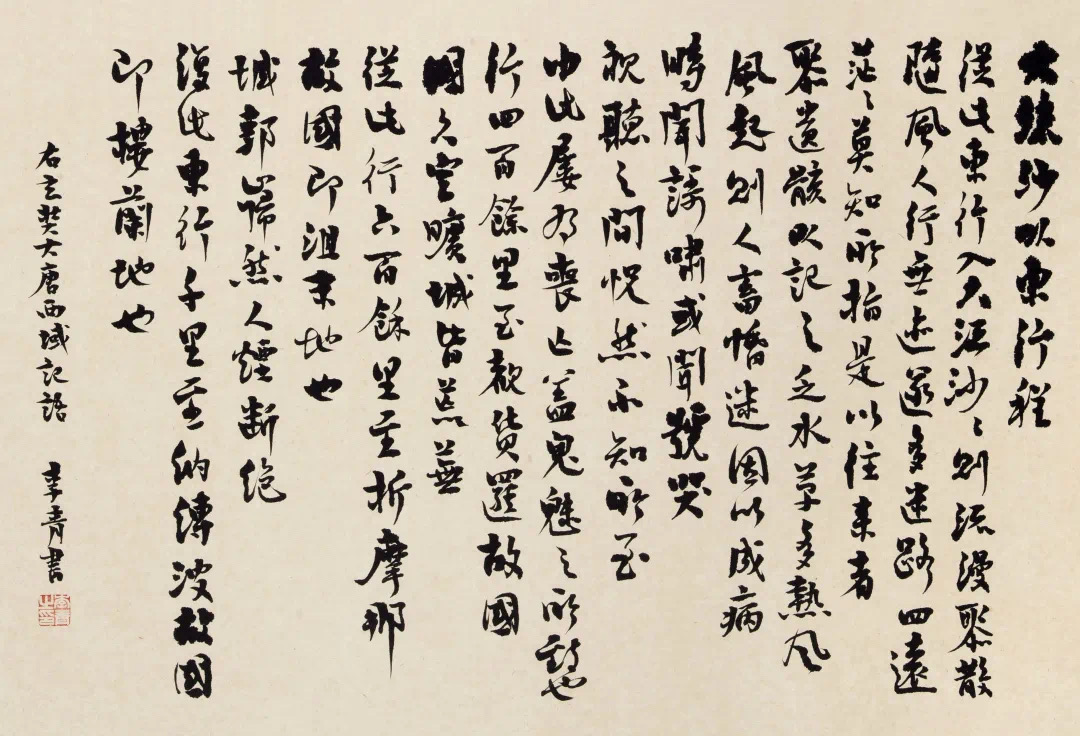 大流沙以東行程
從此東行入大流沙〻則流漫聚散
隨風人行無迹遂多迷路四遠
茫〻莫知所指是以往來者
聚遺骸以記之乏水草多熱風
風起則人畜惛迷因以成病
時聞謌嘯或聞號哭
視聽之間怳然不知所至
由此屢有喪亡蓋鬼魅之所致也
行四百餘里至覩貨邏故國
國久空曠城皆荒蕪
從此行六百餘里至折摩那
故國即沮末地也
城郭巋然人煙斷絕
復此東行千里至納縛波故國
即樓蘭地也
右玄奘大唐西域記語 李青書